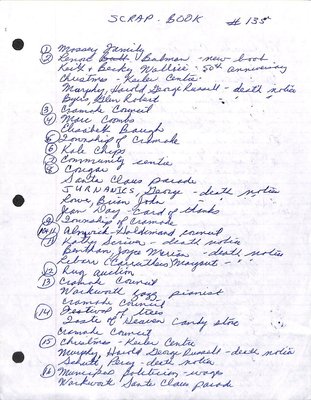 SCRAP-BOOK # 135
① Massey Family
② Balman - new book
Keith & Becky Wallace 50th anniversary
Christmas - Keeler Centre
Murphy, Harold George Russell - death notice
Byers, Glen Robert
③ Cramahe Council
④ Marc Coombs
Elizabeth Baugh
⑤ Township of Cramahe
⑥ Kale Chips
⑦ Community centre
⑧ Cougar
Santa Claus parade
JURNANIS, George - death notice
Rowe, Brian John " "
Jean Day - Card of thanks
⑨ Township of Cramahe
Alnwick-Haldimand council
⑪ Kathy - death notice
Bentham Joyce Marian - death notice
Margaret - " "
⑫ Rug auction
⑬ Cramahe Council
Warkworth jazz pianist
Cramahe Council
⑭ Festival of trees
Taste of Heaven Candy store
Cramahe Council
⑮ Christmas - Keeler Centre
Murphy, Harold George Russell - death notice
Schutt, Percy - death notice
⑯ Municipal politicians - wages
Warkwork Santa Claus parade